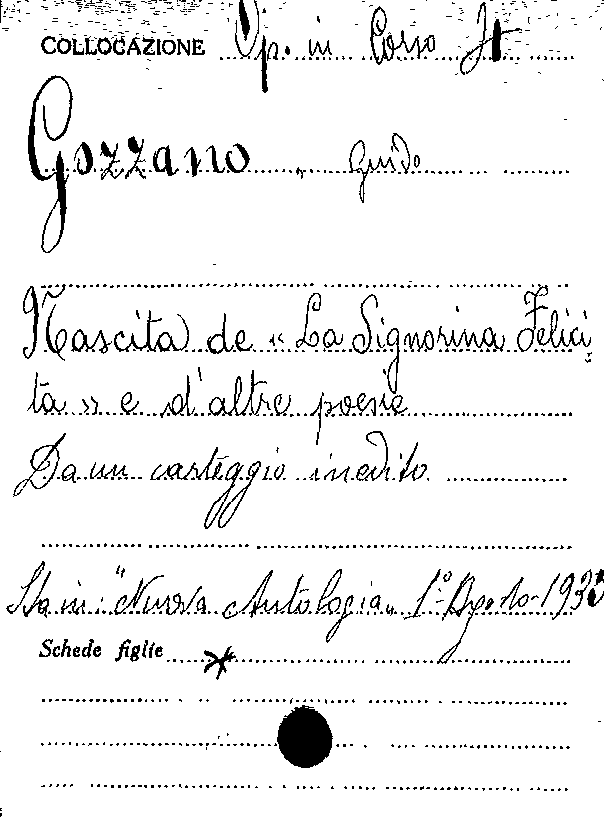 COLLOCAZIONE Op. in Corso It
Gozzano, Guido
Nascita de « La Signorina Felici-
ta » e d'altre poesie
Da un carteggio inedito
Sta in: "Nuova Antologia" 1º Agosto-193
Schede figlie